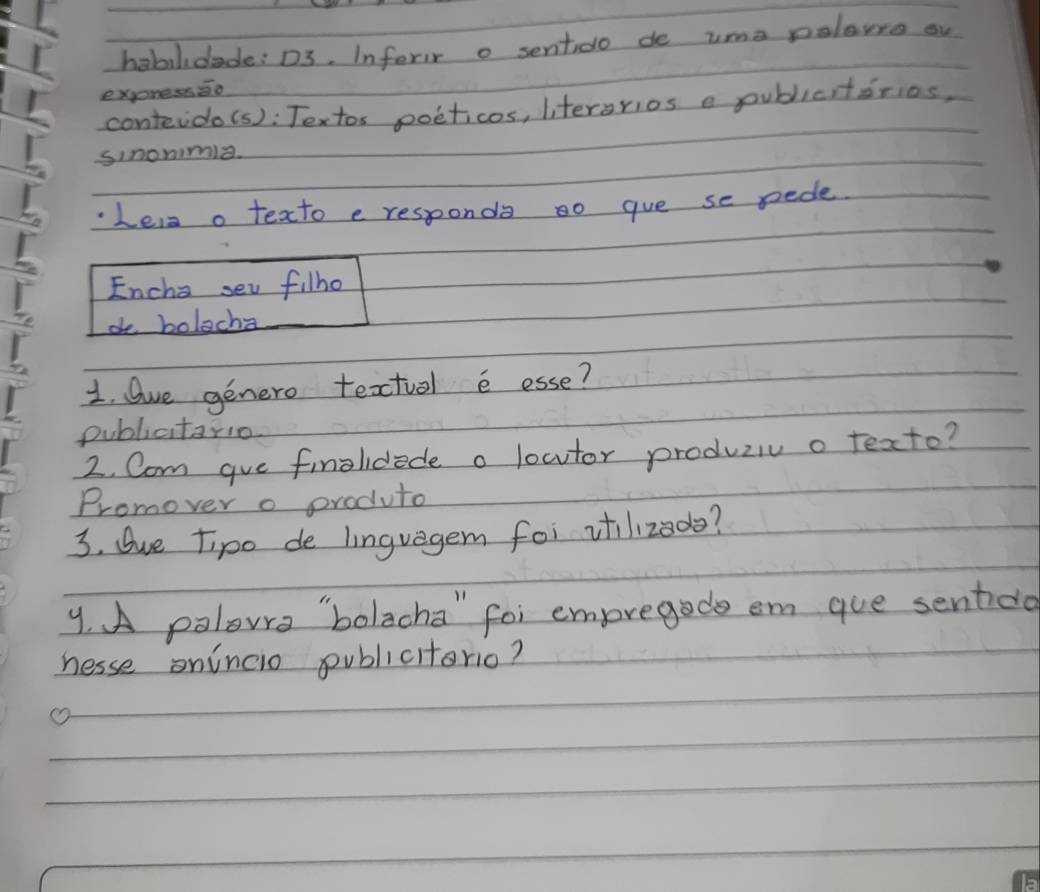 habilidade: D3. Inferir o sentido de uma palavra ou
expressão
conteúdo(s): Textos poéticos, literarios e publicitários,
sinonimia.
• Leia o texto e responda ao que se pede.
Encha seu filho
de bolacha
1. Que género textual é esse?
publicitario
2. Com que finalidade o locutor produziu o texto?
Promover o produto
3. Que Tipo de linguagem foi utilizada?
4. A palavra "bolacha" foi empregada em que sentido
nesse anúncio publicitario?